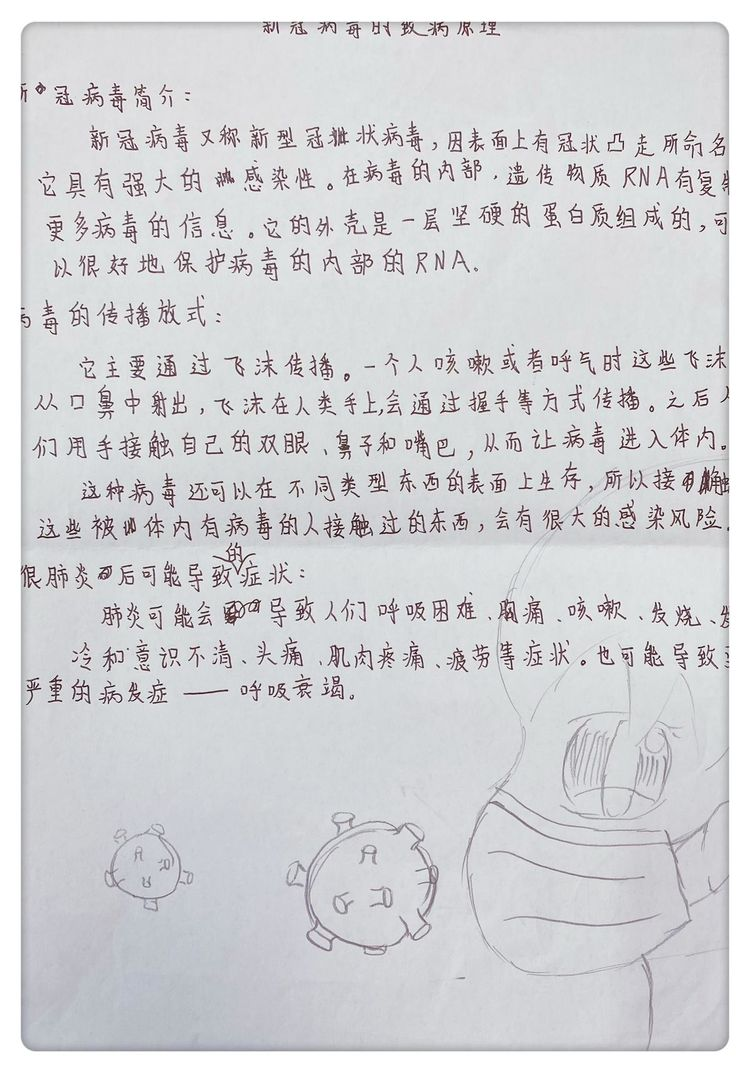 新冠病毒的致病原理
新冠病毒简介：
新冠病毒又称新型冠状病毒，因表面上有冠状凸走所命名
它具有强大的感染性。在病毒的内部，遗传物质RNA有复制
更多病毒的信息。它的外壳是一层坚硬的蛋白质组成的，可
以很好地保护病毒的内部的RNA。
病毒的传播放式：
它主要通过飞沫传播。一个人咳嗽或者呼气时这些飞沫
从口鼻中射出，飞沫在人类手上，会通过握手等方式传播。之后人
们用手接触自己的双眼、鼻子和嘴巴，从而让病毒进入体内。
这种病毒还可以在不同类型东西的表面上生存，所以接触
这些被体内有病毒的人接触过的东西，会有很大的感染风险。
很肺炎后可能导致的症状：
肺炎可能会导致人们呼吸困难、胸痛、咳嗽、发烧、发
冷和意识不清、头痛、肌肉疼痛、疲劳等症状。也可能导致
严重的病发症——呼吸衰竭。